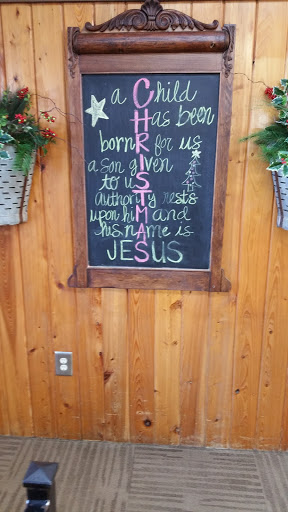 a Child
Has been
boRn for us
a son gIven
to uS
auThority rests
upon hiM and
his nAme is
JESUS